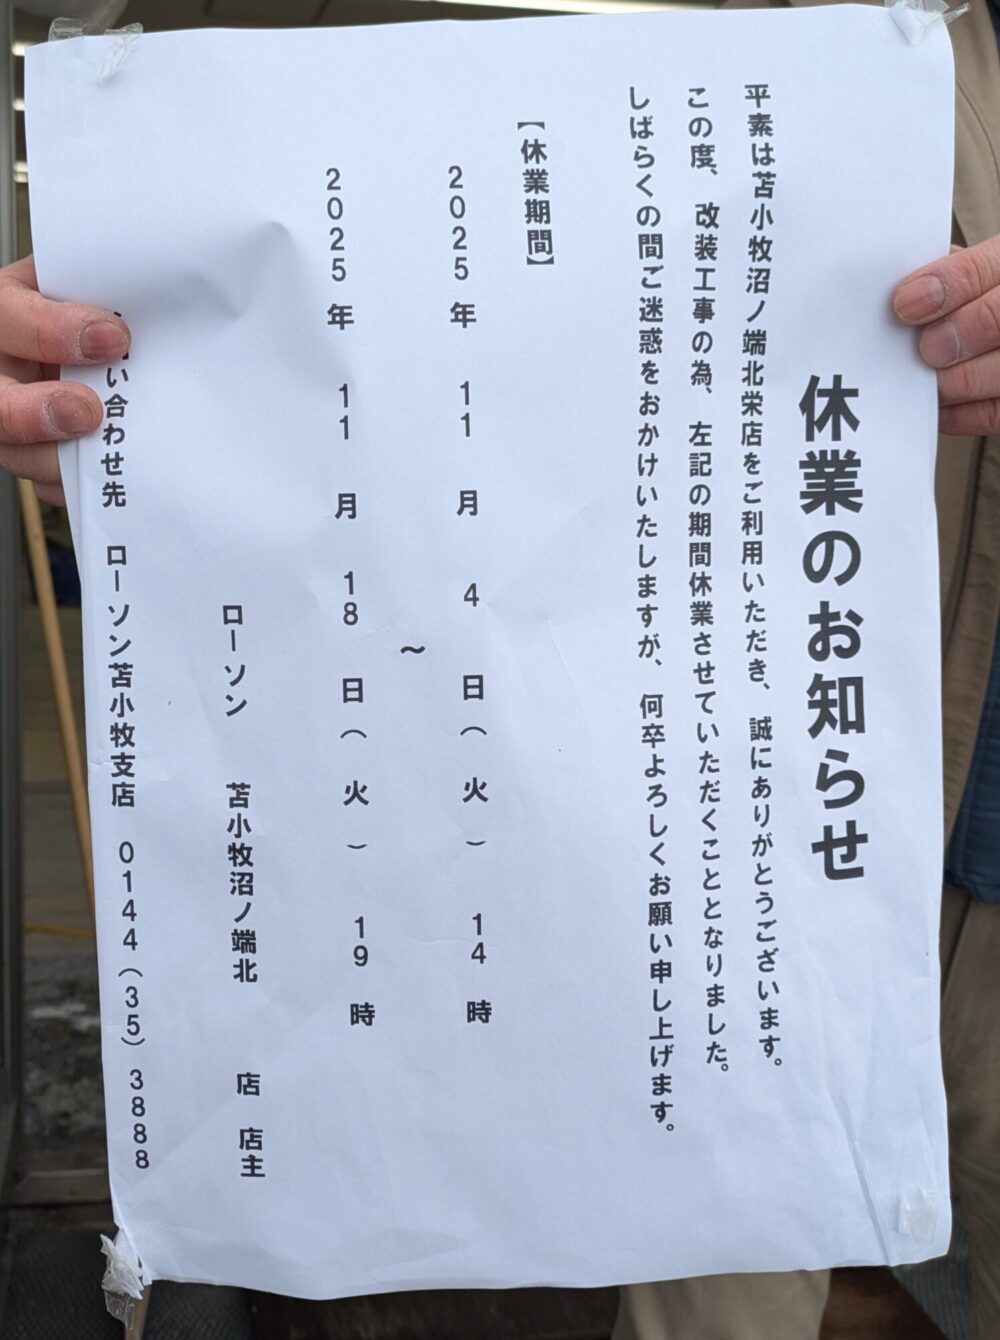 休業のお知らせ
平素は苫小牧沼ノ端北栄店をご利用いただき、誠にありがとうございます。
この度、改装工事の為、左記の期間休業させていただくこととなりました。
しばらくの間ご迷惑をおかけいたしますが、何卒よろしくお願い申し上げます。
【休業期間】
2025年 11月 4日(火) 14時
~
2025年 11月 18日(火) 19時
ローソン 苫小牧沼ノ端北 店 店主
い合わせ先 ローソン苫小牧支店 0144(35)3888